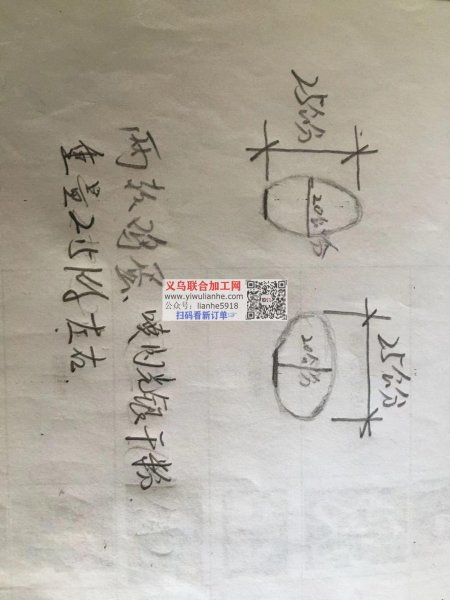 25公分
20公分
25公分
20公分
两款鸡蛋、喷闪光银干粉
重量2.5kg左右
义乌联合加工网
www.yiwulianhe.com
公众号：lianhe5918
扫码看新订单☞